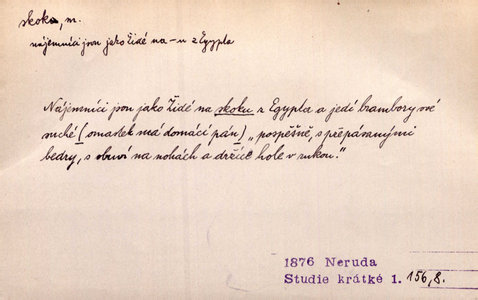 skok, m.
nájemníci jsou jako Židé na -u z Egypta
Nájemníci jsou jako Židé na skoku z Egypta a jedí brambory své
suché (omastek má domácí pán) „pospěšně, s přepásanými
bedry, s obuví na nohách a držíce hole v rukou.“
1876 Neruda
Studie krátké 1. 156,8.